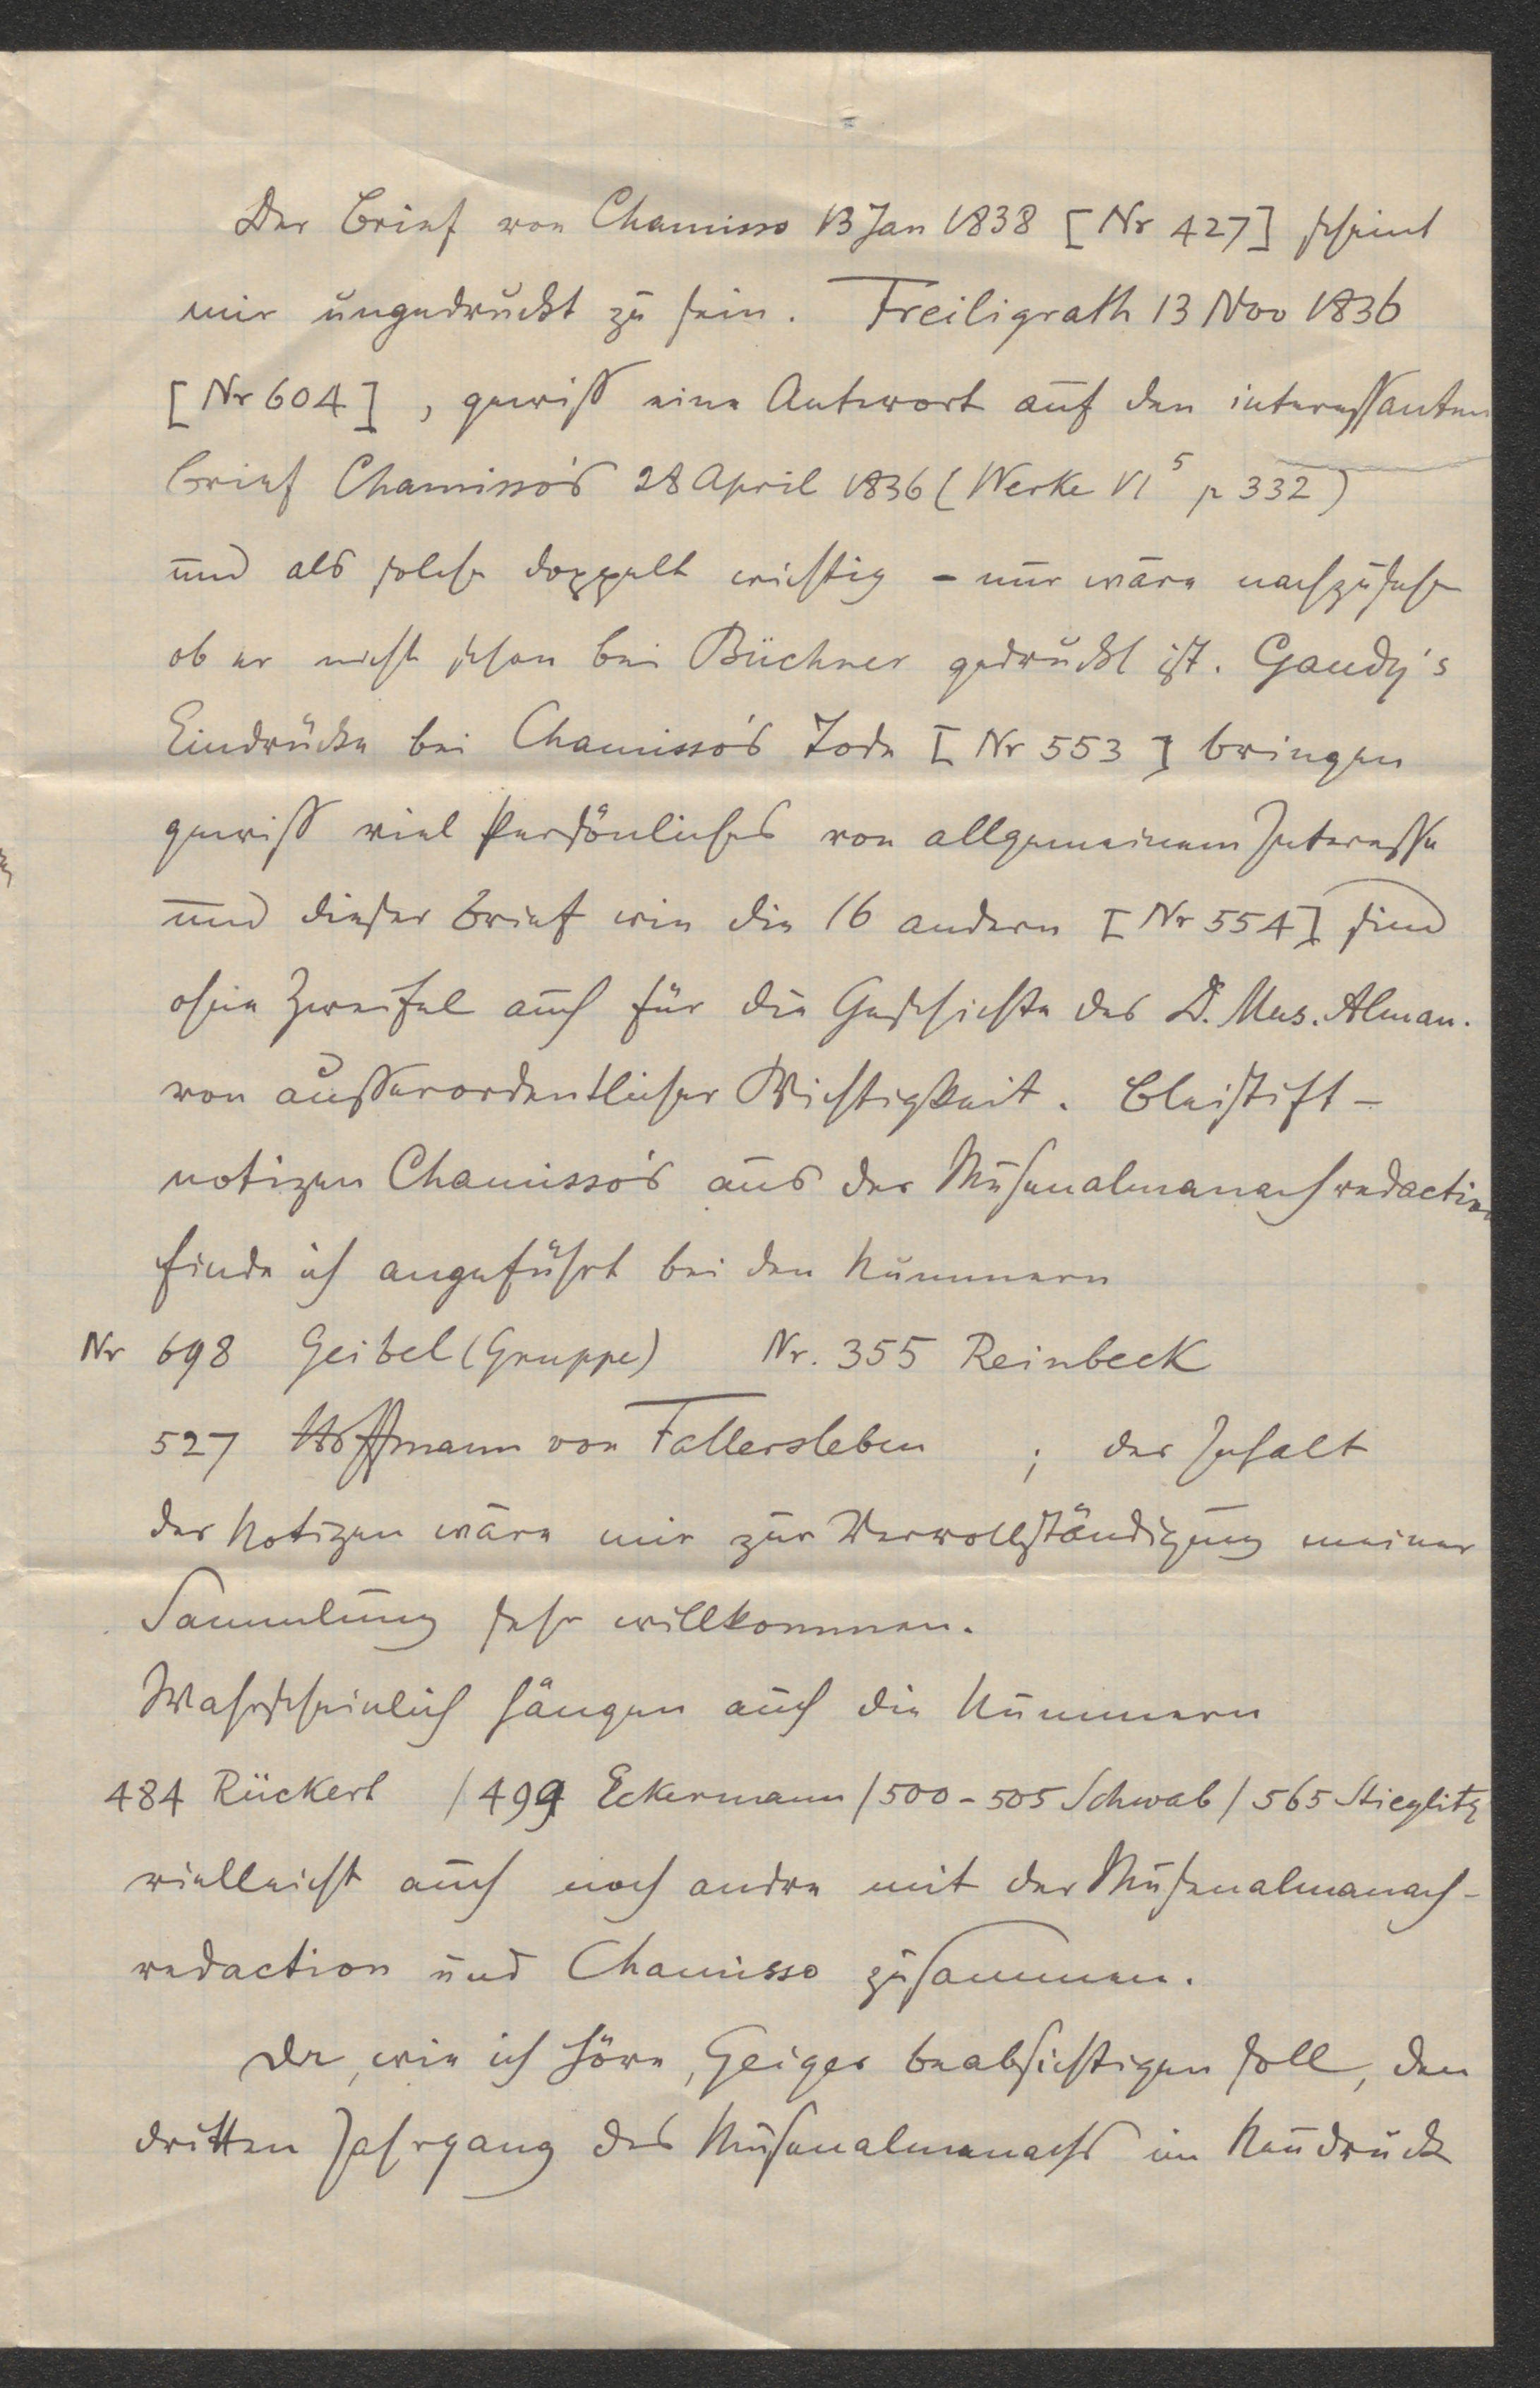 Der Brief von Chamisso 13 Jan 1838 [Nr 427] scheint
mir ungedruckt zu sein. Freiligrath 13 Nov 1836
[Nr 604], gewiss eine Antwort auf den interessanten
Brief Chamisso's 28 April 1836 (Werke VI⁵ p 332)
und als solche doppelt wichtig - nur wäre nachzusehen
ob er nicht schon bei Büchner gedruckt ist. Gaudy's
Eindrücke bei Chamisso's Tode [Nr 553] bringen
gewiss viel Persönliches von allgemeinem Interesse
und dieser Brief wie die 16 andern [Nr 554] sind
ohne Zweifel auch für die Geschichte des D. Mus. Alman.
von ausserordentlicher Wichtigkeit. Bleistift-
notizen Chamisso's aus der Musenalmanachredaction
finde ich angeführt bei den Nummern
Nr 698 Geibel (Gruppe) Nr. 355 Reinbeck
527 Hoffmann von Fallersleben ; der Inhalt
der Notizen wäre mir zur Vervollständigung meiner
Sammlung sehr willkommen.
Wahrscheinlich hängen auch die Nummern
484 Rückert / 499 Eckermann / 500-505 Schwab / 565 Stieglitz
vielleicht auch noch andre mit der Musenalmanach-
redaction und Chamisso zusammen.
Da, wie ich höre, Geiger beabsichtigen soll, den
dritten Jahrgang des Musenalmanachs im Neudruck